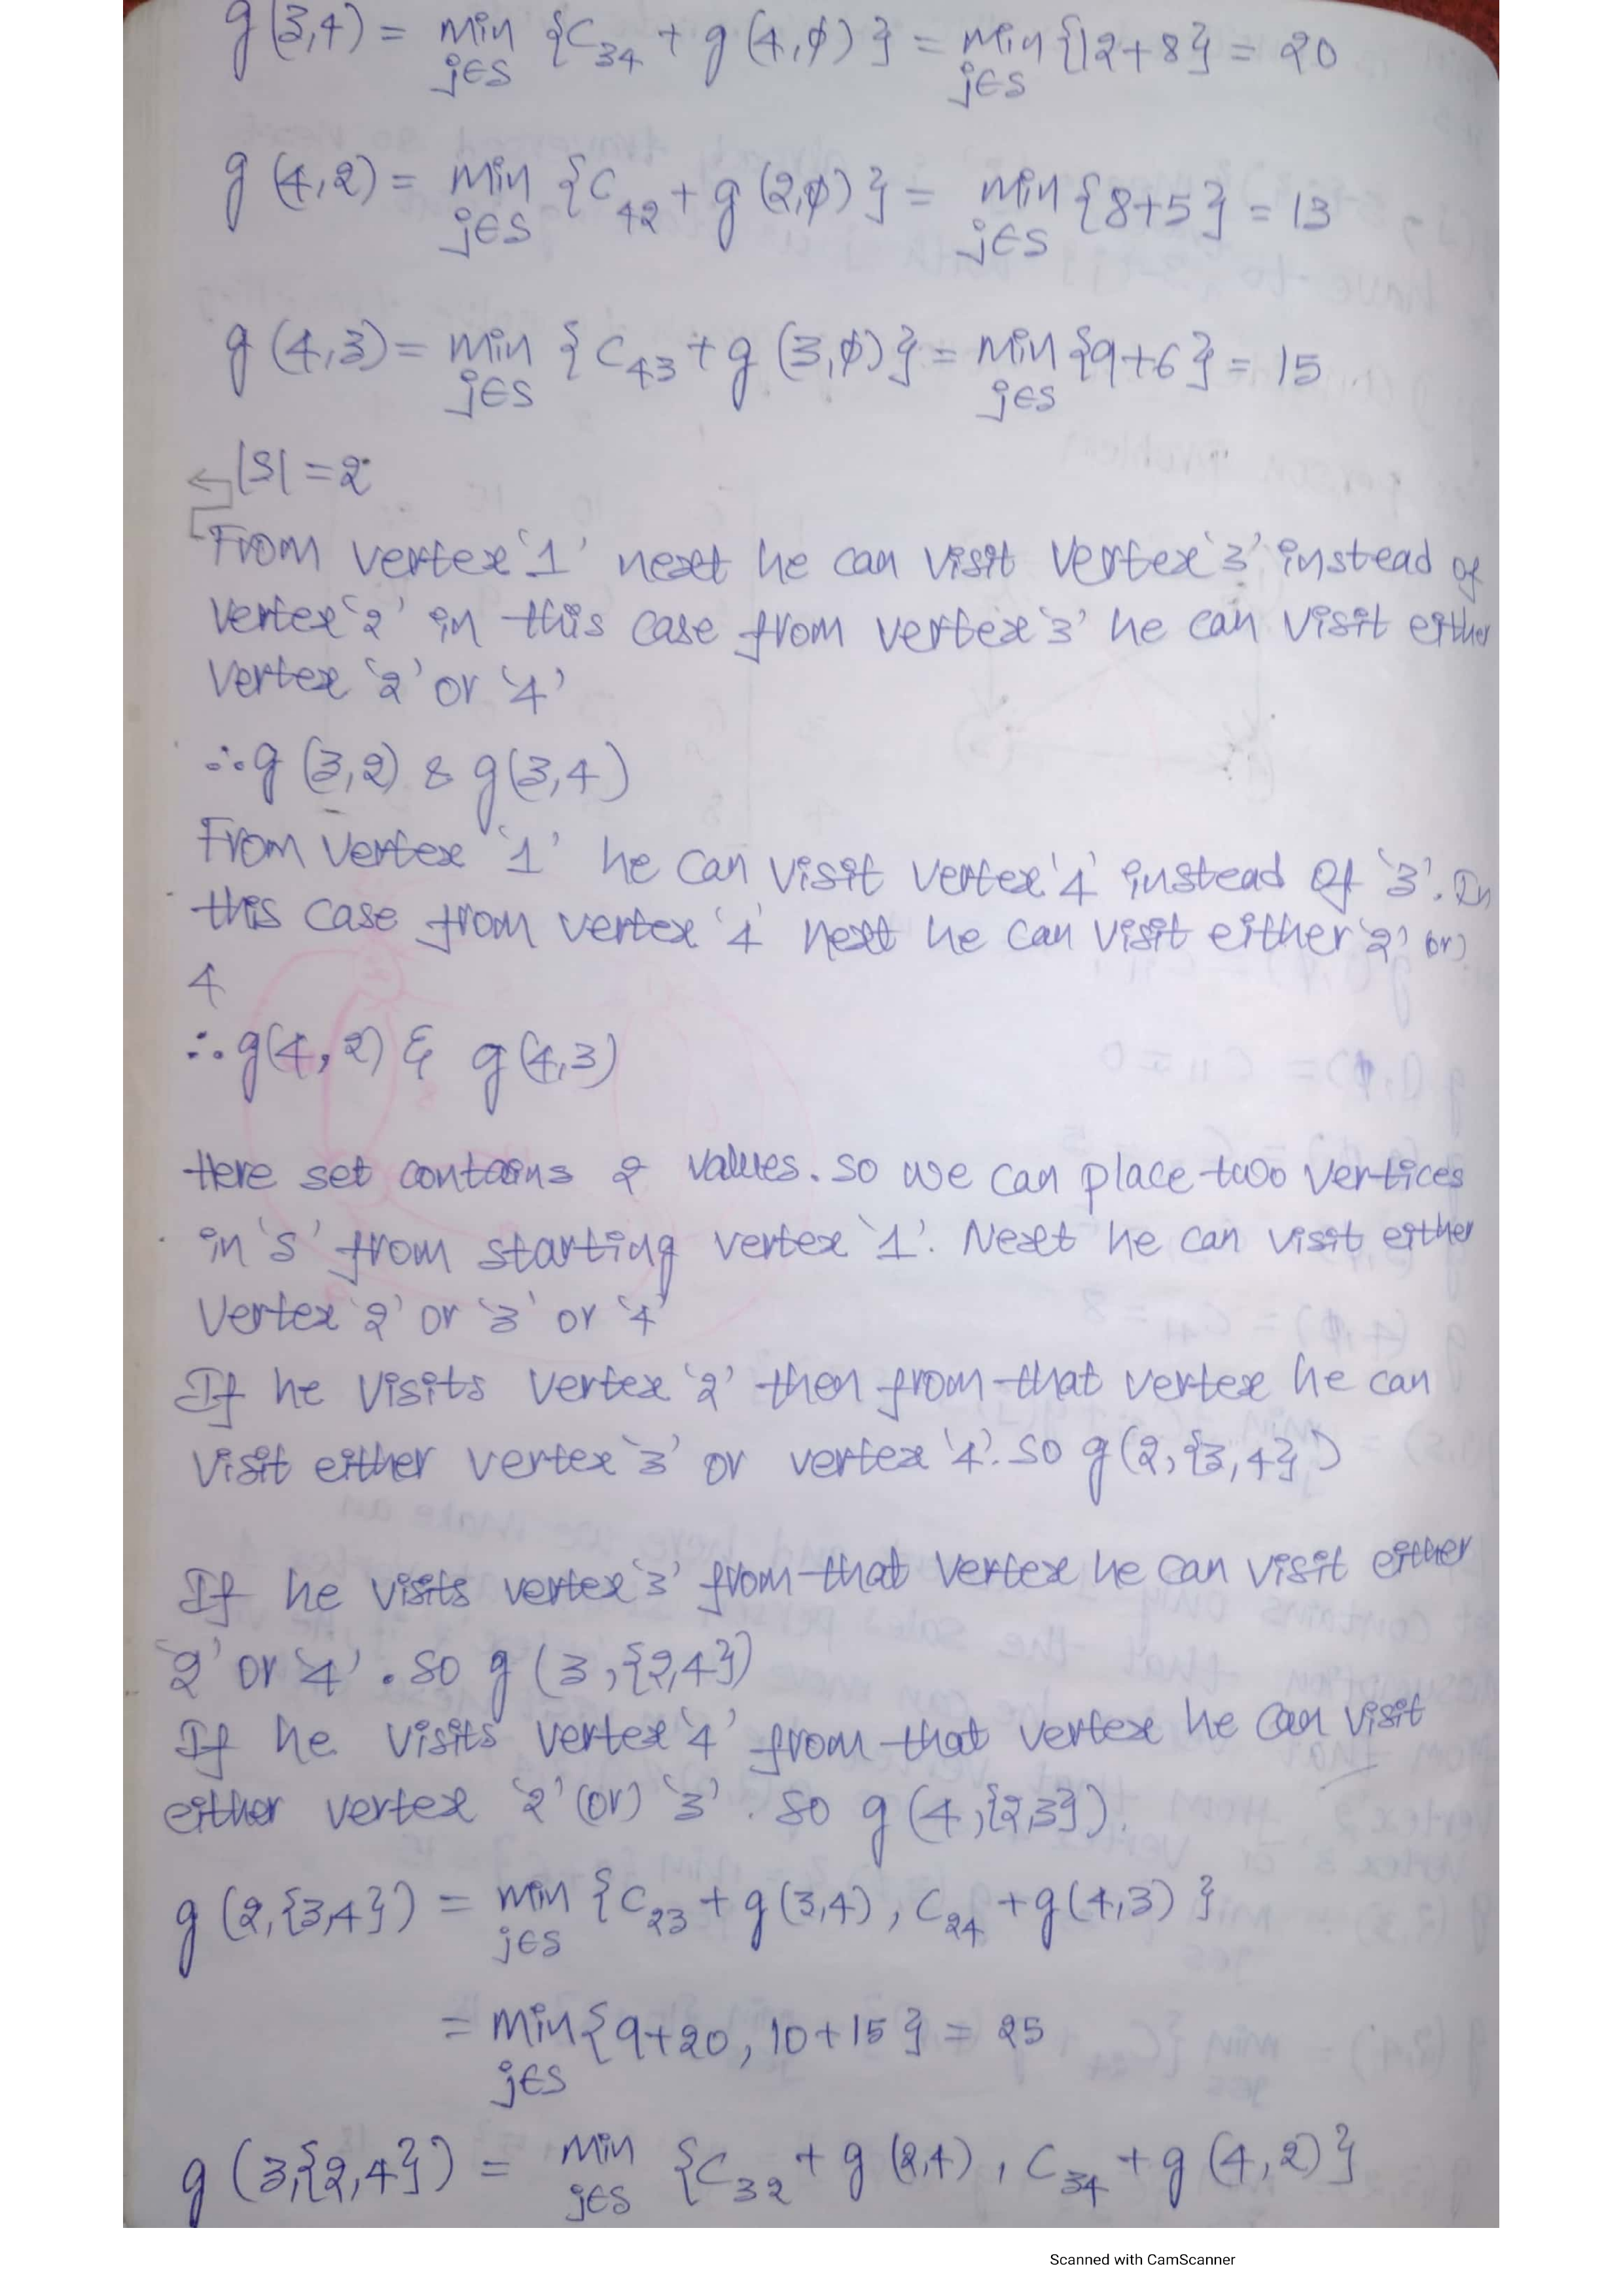 g(3,4) = min {C34 + g(4,φ)} = min {12+8} = 20
j∈S j∈S
g(4,2) = min {C42 + g(2,φ)} = min {8+5} = 13
j∈S j∈S
g(4,3) = min {C43 + g(3,φ)} = min {9+6} = 15
j∈S j∈S
|S| = 2
From vertex '1' next he can visit vertex '3' instead of
vertex '2' in this case from vertex '3' he can visit either
vertex '2' or '4'
∴ g(3,2) & g(3,4)
From vertex '1' he can visit vertex '4' instead of '3'. In
this case from vertex '4' next he can visit either '2' (or)
4
∴ g(4,2) & g(4,3)
Here set contains 2 values. so we can place two vertices
in 's' from starting vertex '1'. Next he can visit either
vertex '2' or '3' or '4'
If he visits vertex '2' then from that vertex he can
visit either vertex '3' or vertex '4'. so g(2,{3,4})
If he visits vertex '3' from that vertex he can visit either
'2' or '4'. so g(3,{2,4})
If he visits vertex '4' from that vertex he can visit
either vertex '2' (or) '3'. so g(4,{2,3}).
g(2,{3,4}) = min {C23 + g(3,4), C24 + g(4,3)}
j∈S
= min {9+20, 10+15} = 25
j∈S
g(3,{2,4}) = min {C32 + g(2,4), C34 + g(4,2)}
j∈S
Scanned with CamScanner